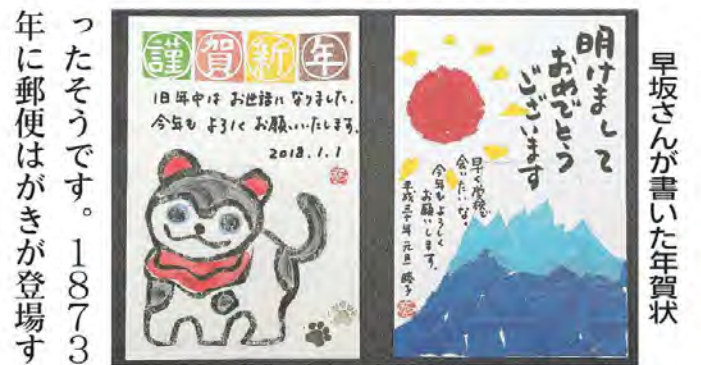 早坂さんが書いた年賀状
明けまして
おめでとう
ございます
早く学校で
会いたいな。
今年もよろしく
お願いします。
平成三十年 元旦
謹賀新年
旧年中は お世話に なりました。
今年も よろしく お願いいたします。
2018.1.1
ったそうです。1873
年に郵便はがきが登場す